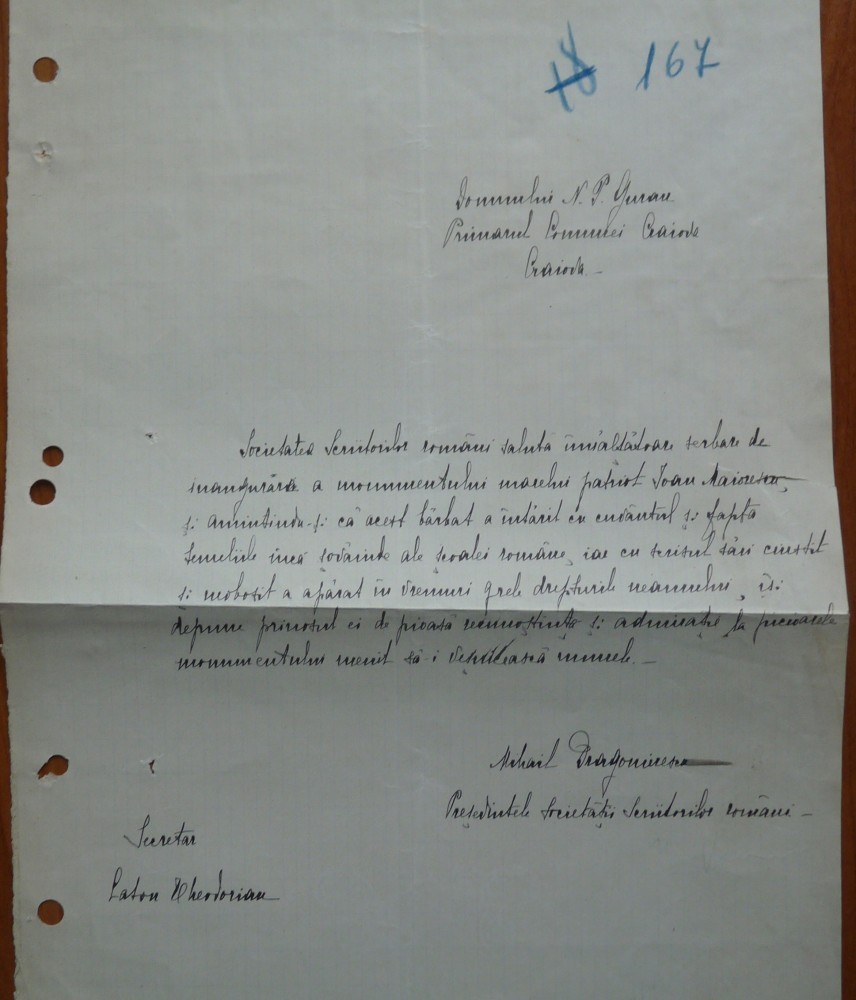 18 167
Domnului N. P. Guran
Primarul Comunei Craiova
Craiova. –
Societatea Scriitorilor români salută înnălțătoare serbare de
inaugurare a monumentului marelui patriot Ioan Maiorescu,
și amintindu-și că acest bărbat a întărit cu cuvântul și fapta
temeliile încă șovăinde ale școalei române, iar cu scrisul său cinstit
și neobosit a apărat în vremuri grele drepturile neamului, își
depune prinosul ei de pioasă recunoștință și admirație la picioarele
monumentului menit să-i veșnicească numele. –
Mihail Dragomirescu
Președintele Societății Scriitorilor români –
Secretar
Caton Theodorian